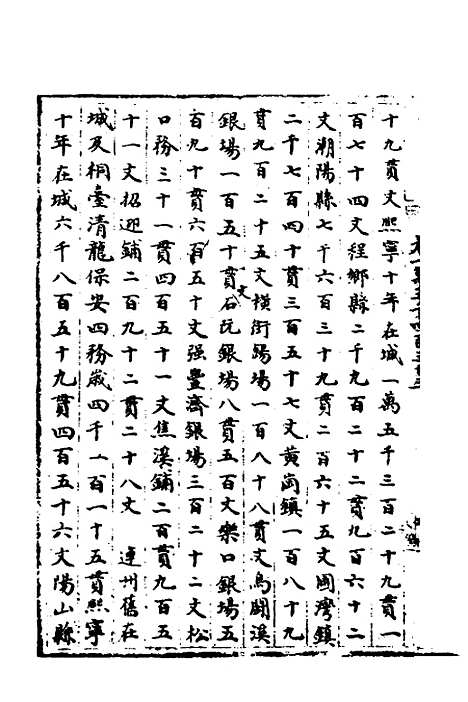 十九貫文熙寧十年在城一萬五千三百二十九貫一
百七十四文程鄉縣二千九百二十二貫九百六十二
文潮陽縣七千六百三十九貫二百六十五文圌灣鎮
二千七百四十貫三百五十七文黃崗鎮一百八十九
貫九百二十五文橫衝錫場一百八十八貫文烏關溪
銀場一百五十貫文石坑銀場八貫五百文樂口銀場五
百九十貫六百五十文強豐濟銀場三百二十二文松
口務三十一貫四百五十一文焦溪鋪二百貫九百五
十一文招迎鋪二百九十二貫二十八文 連州舊在
城及桐臺清龍保安四務歲四千一百一十五貫熙寧
十年在城六千八百五十九貫四百五十六文陽山縣